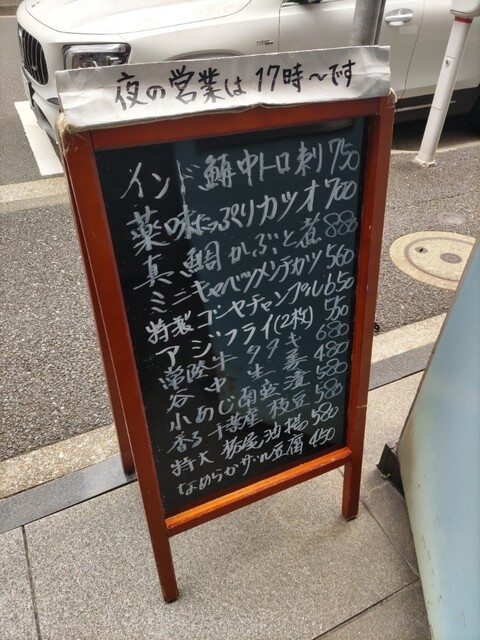 夜の営業は 17時～です
インド鮪中トロ刺 750
薬味たっぷりカツオ 700
真鯛かぶと煮 880
ミニキャベツメンチカツ 560
特製ゴーヤチャンプル 650
アジフライ(2枚) 550
常陸牛タタキ 680
谷中生姜 480
小あじ南蛮漬 580
香る千葉産枝豆 580
特大栃尾油揚 580
なめらかザル豆腐 450